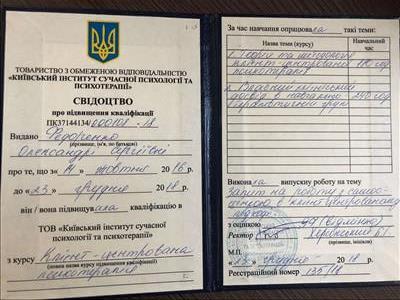 ТОВАРИСТВО З ОБМЕЖЕНОЮ ВІДПОВІДАЛЬНІСТЮ
«КИЇВСЬКИЙ ІНСТИТУТ СУЧАСНОЇ ПСИХОЛОГІЇ ТА
ПСИХОТЕРАПІЇ»
СВІДОЦТВО
про підвищення кваліфікації
ПК37144134/000101-18
Видано Федоренко
(прізвище, ім'я, по батькові)
Олександрі Сергіївні
про те, що з «14» жовтня 2016 р.
до «23» грудня 2018 р.
він / вона підвищувала кваліфікацію в
ТОВ «Київський інститут сучасної
психології та психотерапії»
з курсу Клієнт-центрована
(повна назва курсу підвищення кваліфікації)
психотерапія
За час навчання опрацювала такі теми:
Назва теми (курсу)
Навчальний
час
1. Теорія та методологія
клієнт-центрованої
психотерапії
2. Власний клієнтський
досвід в навчальній 240 год
терапевтичній групі
Виконала випускну роботу на тему
Запит на роботу з самооцінкою
в клієнт-центрованому
підході
з оцінкою (відмінно)
Ректор
(прізвище, ініціали)
М.П.
«23» грудня 2018 р.
Реєстраційний номер 135/18